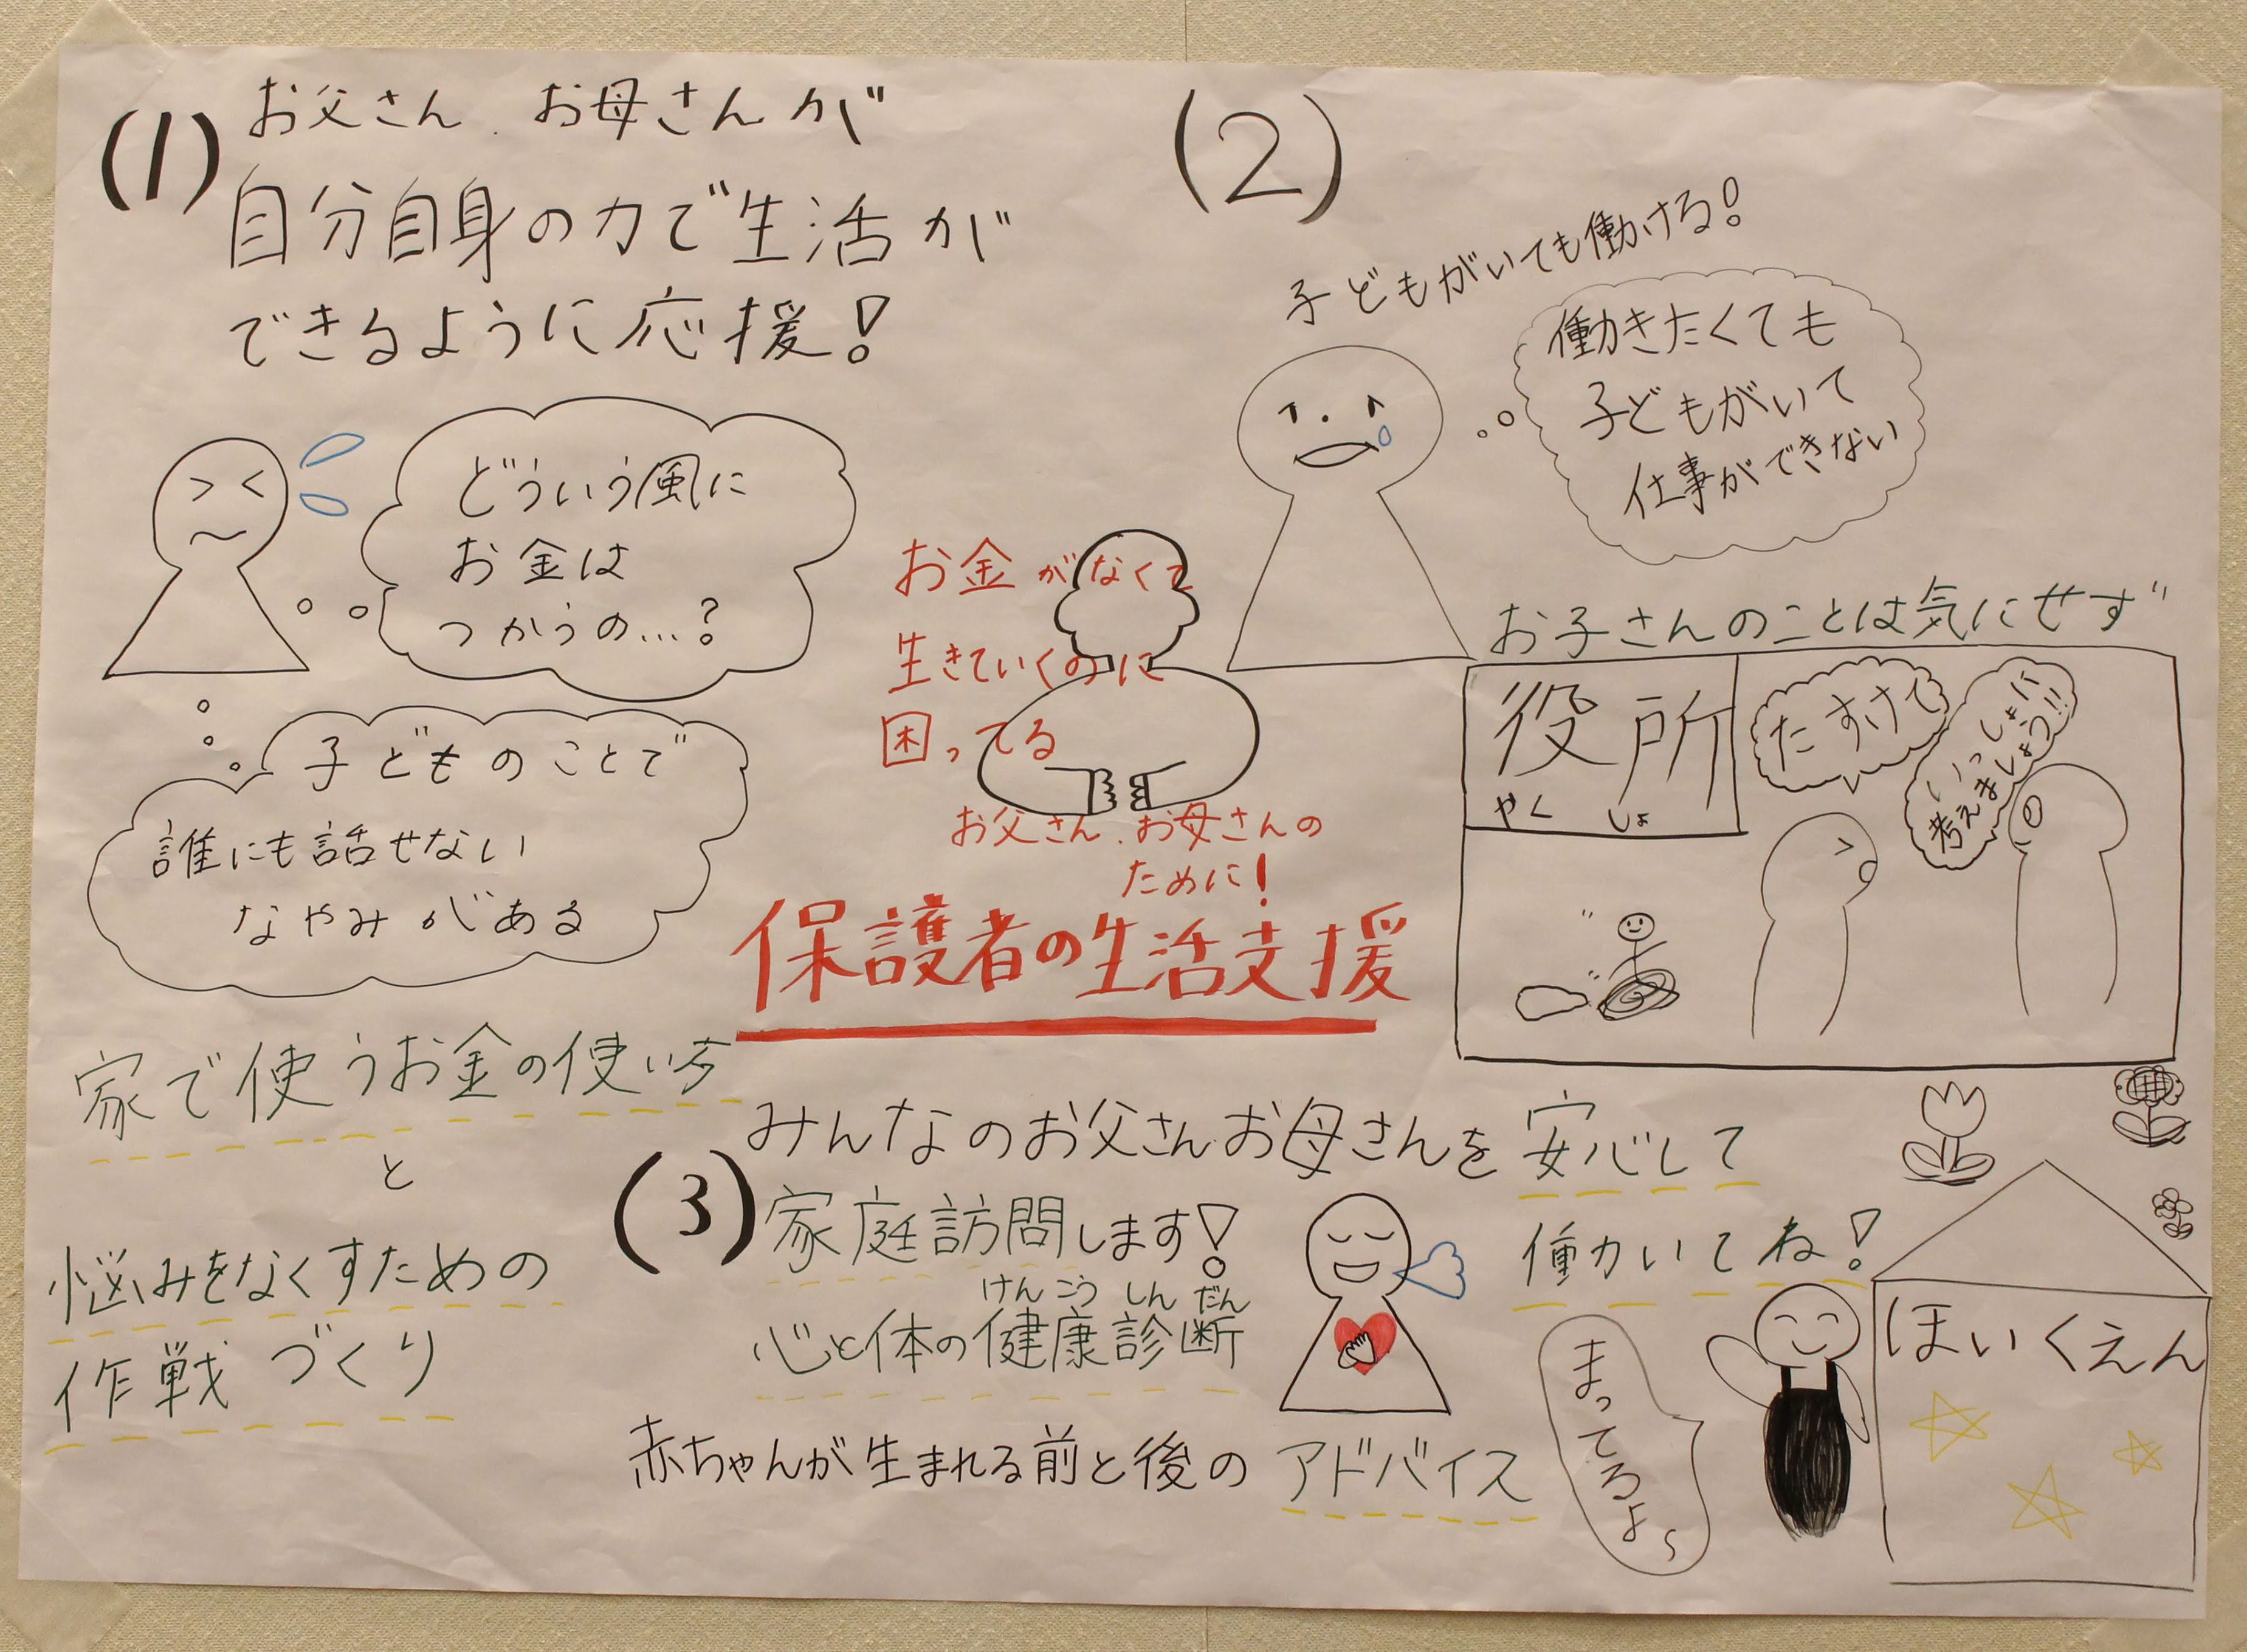 (1)
お父さん、お母さんが
自分自身の力で生活が
できるように応援!
どういう風に
お金は
つかうの…?
子どものことで
誰にも話せない
なやみがある
家で使うお金の使い方
と
悩みをなくすための
作戦づくり
お金がなくて
生きていくのに
困ってる
お父さん、お母さんの
ために!
保護者の生活支援
(2)
子どもがいても働ける!
働きたくても
子どもがいて
仕事ができない
お子さんのことは気にせず
役所
やくしょ
たすけて
いっしょに
考えましょう!!
安心して
働かいてね!
まってるよ~
ほいくえん
(3)
みんなのお父さんお母さんを
家庭訪問します!
けんこうしんだん
心と体の健康診断
赤ちゃんが生まれる前と後のアドバイス